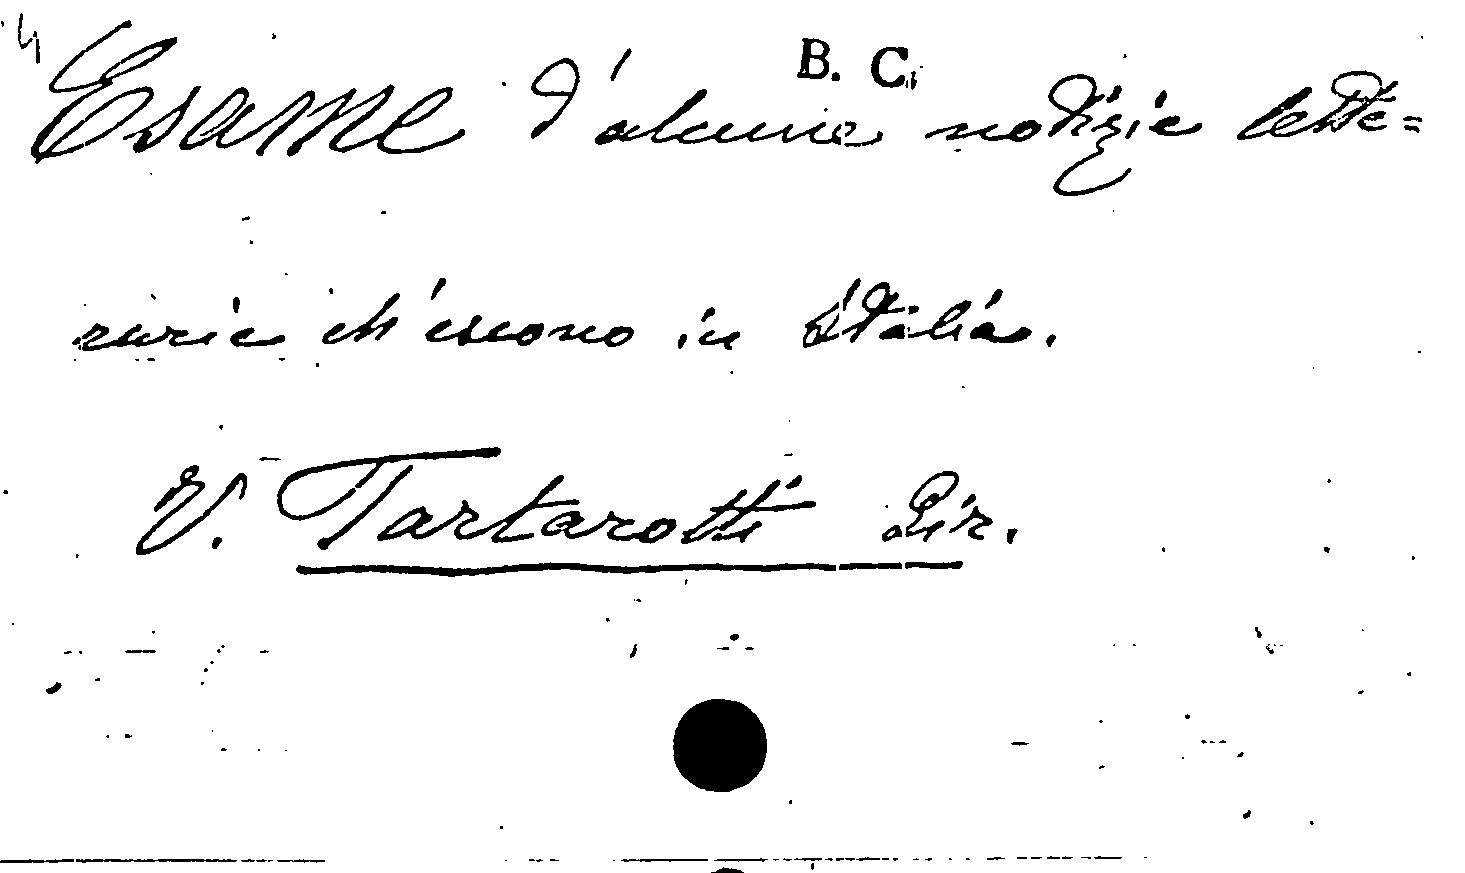 B. C.
Esame d'alcune notizie lette=
rarie ch'escono in Italia.
V. Tartarotti Gir.